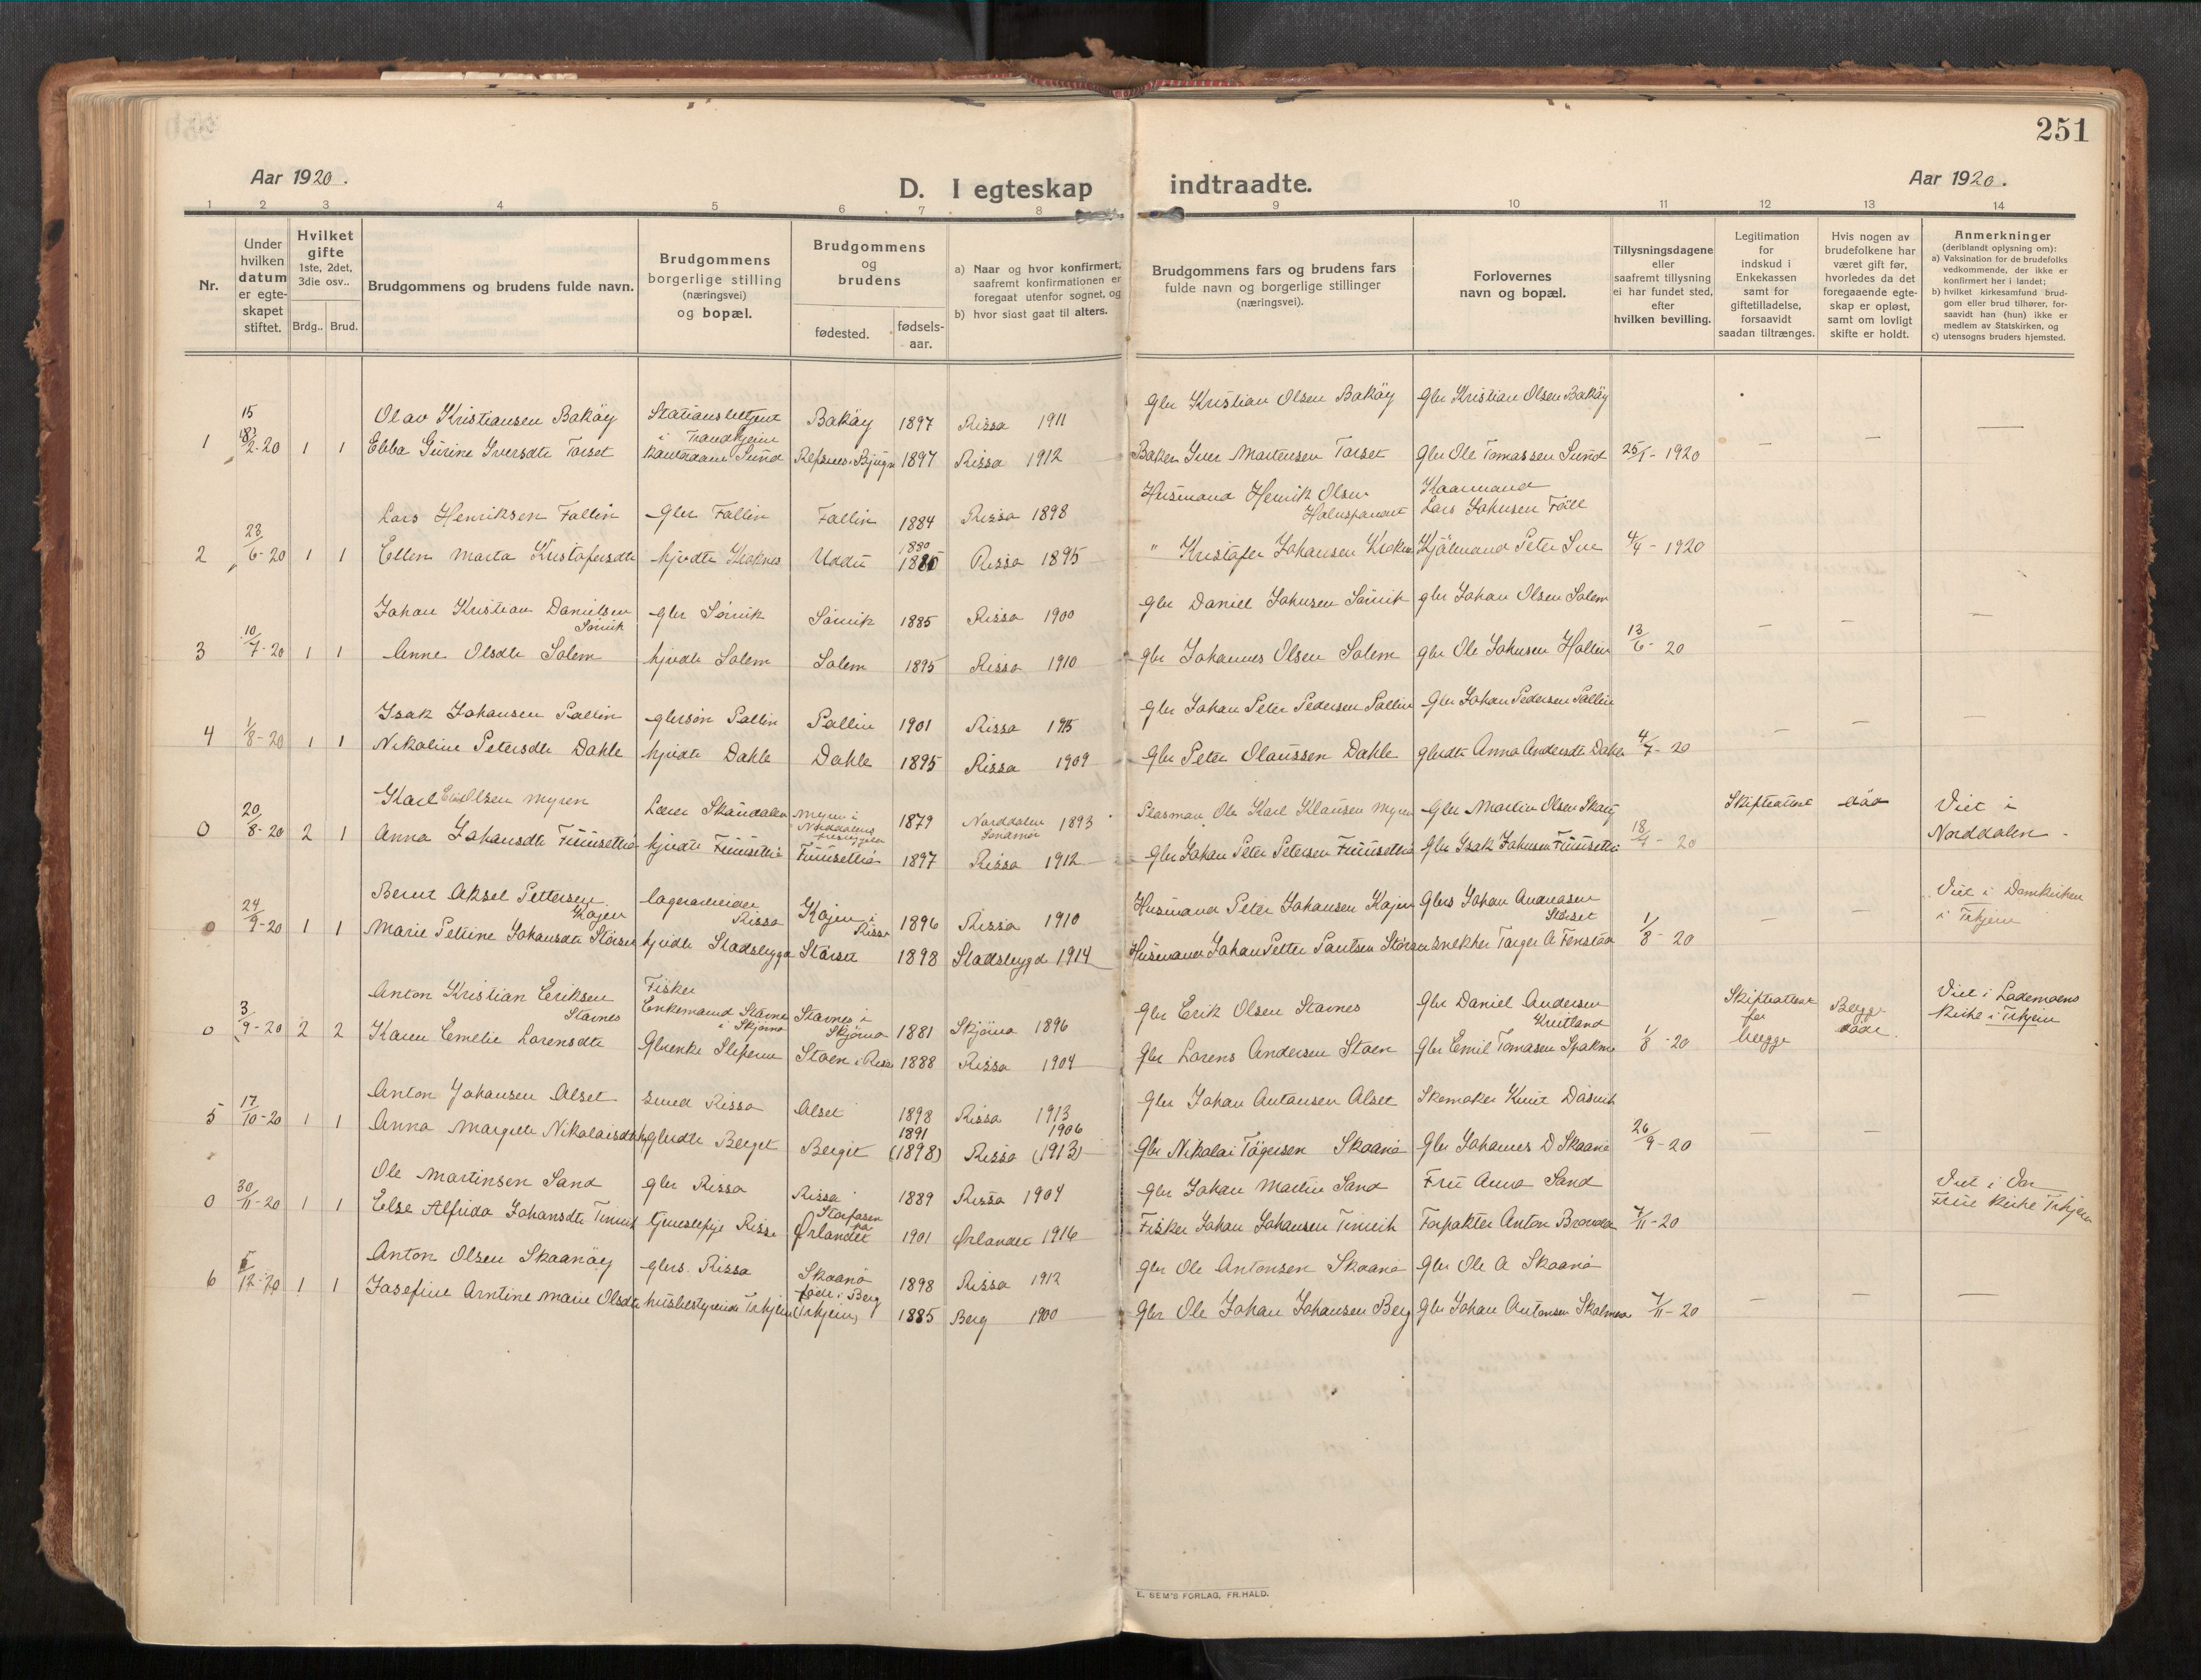 251
Aar 1920.
D. I egteskap indtraadte.
Aar 1920.
1 2 3 4 5 6 7 8 9 10 11 12 13 14
Nr.
Under hvilken datum er egteskapet stiftet.
Hvilket gifte
1ste, 2det, 3die osv..
Brdg.. Brud.
Brudgommens og brudens fulde navn.
Brudgommens borgerlige stilling (næringsvei) og bopæl.
Brudgommens og brudens
fødested.
fødsels-aar.
a) Naar og hvor konfirmert, saafremt konfirmationen er foregaat utenfor sognet, og
b) hvor sidst gaat til alters.
Brudgommens fars og brudens fars fulde navn og borgerlige stillinger (næringsvei).
Forlovernes navn og bopæl.
Tillysningsdagene eller saafremt tillysning ei har fundet sted, efter hvilken bevilling.
Legitimation for indskud i Enkekassen samt for giftetilladelse, forsaavidt saadan tiltrænges.
Hvis nogen av brudefolkene har været gift før, hvorledes da det foregaaende egteskap er opløst, samt om lovligt skifte er holdt.
Anmerkninger
(deriblandt oplysning om):
a) Vaksination for de brudefolks vedkommende, der ikke er konfirmert her i landet;
b) hvilket kirkesamfund brudgom eller brud tilhører, forsaavidt han (hun) ikke er medlem av Statskirken, og
c) utensogns bruders hjemsted.
Olav Kristiansen Bakøy i Trondhjem Bakøy 1897 Rissa 1911 Gbr Kristian Olsen Bakøy Gbr Kristian Olsen Bakøy
1 2-20 1 1 Ebba Gurine Iversdtr Torset Sund 1897 Rissa 1912 Baker Iver Martensen Torset Gbr Ole Tomassen Sund 25/1 - 1920 — — —
Lars Henriksen Fallin Gbr Fallin Fallin 1884 Rissa 1898 Husmand Henrik Olsen Lars Johnsen
2 23/6-20 1 1 Ellen Marta Kristofersdtr hjvdtr 1880 Rissa 1895 " Kristofer Johansen Peter 4/4 - 1920
Johan Kristian Danielsen Sørvik gbr Sørvik Sørvik 1885 Rissa 1900 gbr Daniel Johnsen Sørvik gbr Johan Olsen Solem
3 10/7-20 1 1 Anne Olsdtr Solem hjvdtr Solem Solem 1895 Rissa 1910 gbr Johannes Olsen Solem gbr Ole Johnsen 13/6 - 20 — — —
Isak Johansen Pallin gbrsøn Pallin Pallin 1901 Rissa 1915 Gbr Johan Peter Pedersen Pallin Gbr Johan Pedersen Pallin
4 1/8-20 1 1 Nikoline Petersdtr Dahle hjvdtr Dahle Dahle 1895 Rissa 1909 Gbr Peter Olaussen Dahle gbrdtr Anna Andersdtr Dahle 4/7 - 20 — — —
Karl Olsen Myren Lærer Skaudalen Myren i Norddalens 1879 Norddalen Søndmør 1893 Ole Karl Klausen Myren Gbr Martin Olsen Skifteattest død Viet i
0 20/8-20 2 1 Anna Johansdtr hjvdtr 1897 Rissa 1912 Gbr Johan Peter Petersen Gbr Isak Johnsen 18/7 - 20 Norddalen
Bernt Aksel Pettersen Kojen lagerarbeider Rissa Kojen i Rissa 1896 Rissa 1910 Husmand Peter Johansen Kojen Gbrs Johan Størset Viet i Domkirken
0 24/9-20 1 1 Marie Petrine Johansdtr Størset hjvdtr Stadsbygd Størset 1898 Stadsbygd 1914 Husmand Johan Petter Størset snekker 1/8 - 20 — — i Trhjem
Anton Kristian Eriksen Stavnes Fisker Enkemand Stavnes i Skjørna Stavnes i Skjørna 1881 Skjørna 1896 Gbr Erik Olsen Stavnes Gbr Daniel Andersen Skifteattest for Begge Viet i Lademoens
0 3/9-20 2 2 Karen Emelie Lorensdtr Gbrenke Støen i Rissa 1888 Rissa 1904 Gbr Lorens Andersen Støen Gbr Emil Tomasen 1/8 - 20 begge døde Kirke i Trhjem
Anton Johansen Alset smed Rissa Alset 1898 Rissa 1913 Gbr Johan Antonsen Alset Skomaker
5 17/10-20 1 1 Anna Margrete Nikolaisdtr gbrdtr Berget Berget 1891 (1898) Rissa 1906 (1913) Gbr Nikolai Skaanø Gbr Johannes D Skaanø 26/9 - 20 — —
Ole Martinsen Sand gbr Rissa Rissa 1889 Rissa 1904 gbr Johan Martin Sand Fru Anna Sand Viet i Vor
0 30/11-20 1 1 Else Alfrida Johansdtr tjenestepige Rissa Storfosen paa Ørlandet 1901 Ørlandet 1916 Fisker Johan Johansen Forpakter Anton 7/11 - 20 Frue Kirke Trhjem
Anton Olsen Skaanøy gbrs. Rissa Skaanø 1898 Rissa 1912 gbr Ole Antonsen Skaanø Gbr Ole A Skaanø
6 12-20 1 1 Josefine Arntine Marie Olsdtr husbestyrerinde Trhjem født i Berg (Trhjem) 1885 Berg 1900 Gbr Ole Johan Johansen Berg Gbr Johan Antonsen 7/11 - 20 — — —
E. SEM'S FORLAG, FR.HALD.